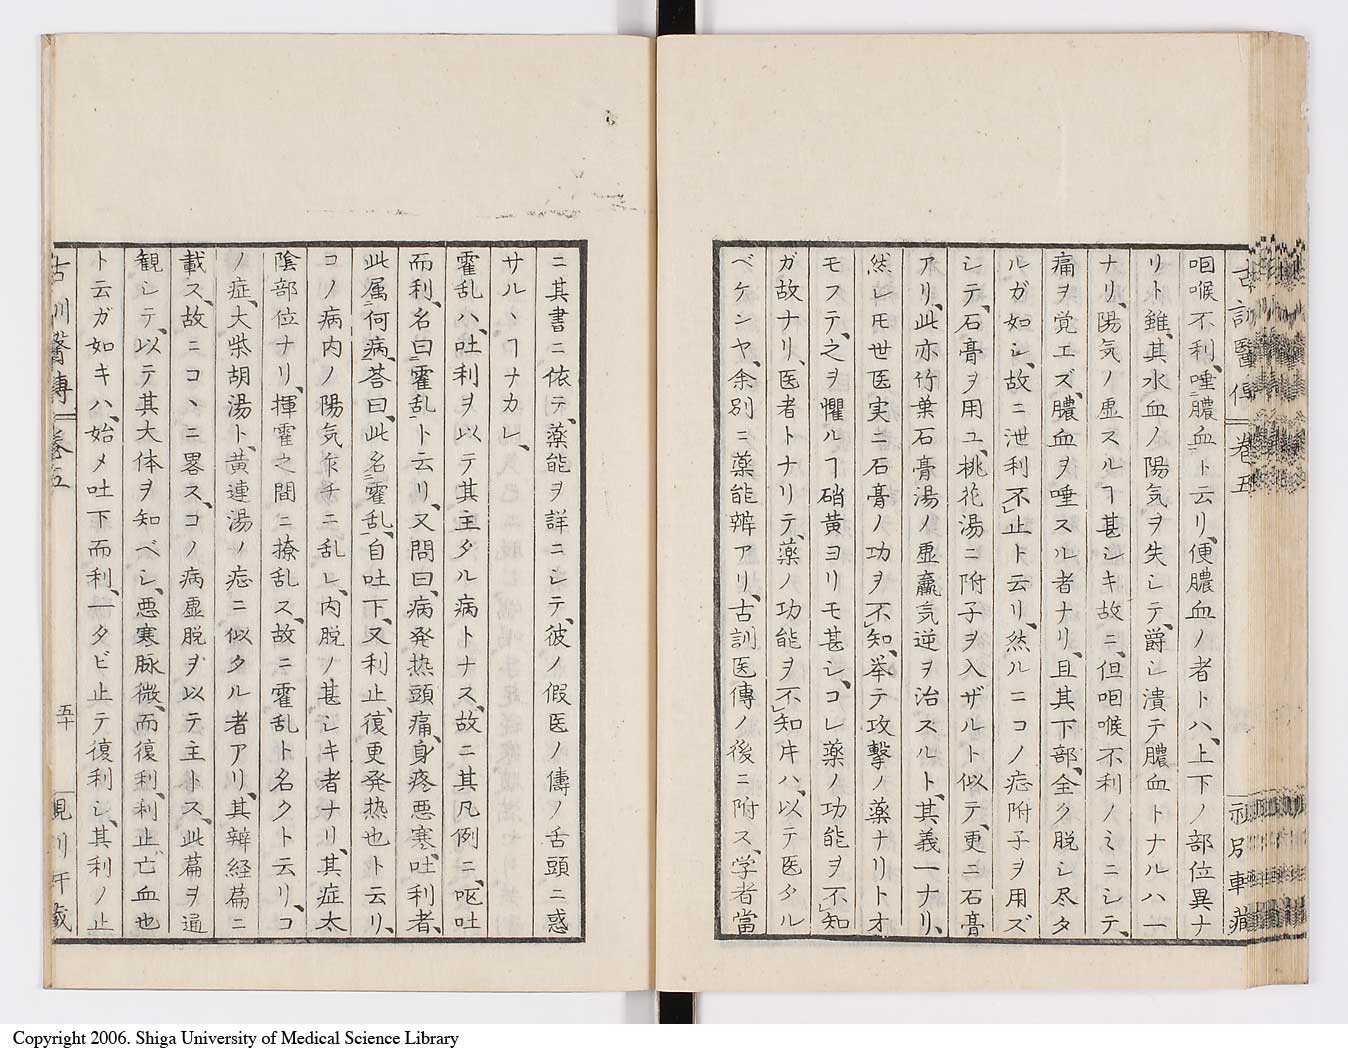 咽喉不利、唾膿血ト云リ、便膿血ノ者トハ、上下ノ部位異ナ
リト雖、其水血ノ陽気ヲ失シテ、爵シ潰テ膿血トナルハ一
ナリ、陽気ノ虚スルヿ甚シキ故ニ、但咽喉不利ノミニシテ、
痛ヲ覚エズ、膿血ヲ唾スル者ナリ、且其下部、全ク脱シ尽タ
ルガ如シ、故ニ泄利不止ト云リ、然ルニコノ症附子ヲ用ズ
シテ、石膏ヲ用ユ、桃花湯ニ附子ヲ入ザルト似テ、更ニ石膏
アリ、此亦竹葉石膏湯ノ虚羸気逆ヲ治スルト、其義一ナリ、
然レㇳモ世医実ニ石膏ノ功ヲ不知、挙テ攻撃ノ薬ナリトオ
モフテ、之ヲ懼ルヿ硝黄ヨリモ甚シ、コレ薬ノ功能ヲ不知
ガ故ナリ、医者トナリテ、薬ノ功能ヲ不知片ハ、以テ医タル
ベケンヤ、余別ニ薬能辨アリ、古訓医傳ノ後ニ附ス、学者當
ニ其書ニ依テ、薬能ヲ詳ニシテ、彼ノ假医ノ傳ノ舌頭ニ惑
サルヽヿナカレ、
霍乱ハ、吐利ヲ以テ其主タル病トナス、故ニ其凡例ニ、嘔吐
而利、名曰霍乱ト云リ、又問曰、病発热頭痛、身疼悪寒、吐利者、
此属何病、荅曰、此名霍乱、自吐下、又利止、復更発热也ト云リ、
コノ病内ノ陽気乍チニ乱レ、内脱ノ甚シキ者ナリ、其症太
陰部位ナリ、揮霍之間ニ撩乱ス、故ニ霍乱ト名クト云リ、コ
ノ症、大柴胡湯ト、黄連湯ノ症ニ似タル者アリ、其辨経篇ニ
載ス、故ニコヽニ畧ス、コノ病虚脱ヲ以テ主トス、此篇ヲ通
観シテ、以テ其大体ヲ知ベシ、悪寒脉微、而復利、利止、亡血也
ト云ガ如キハ、始メ吐下而利、一タビ止テ復利シ、其利ノ止
古訓醫傳 巻五
五十